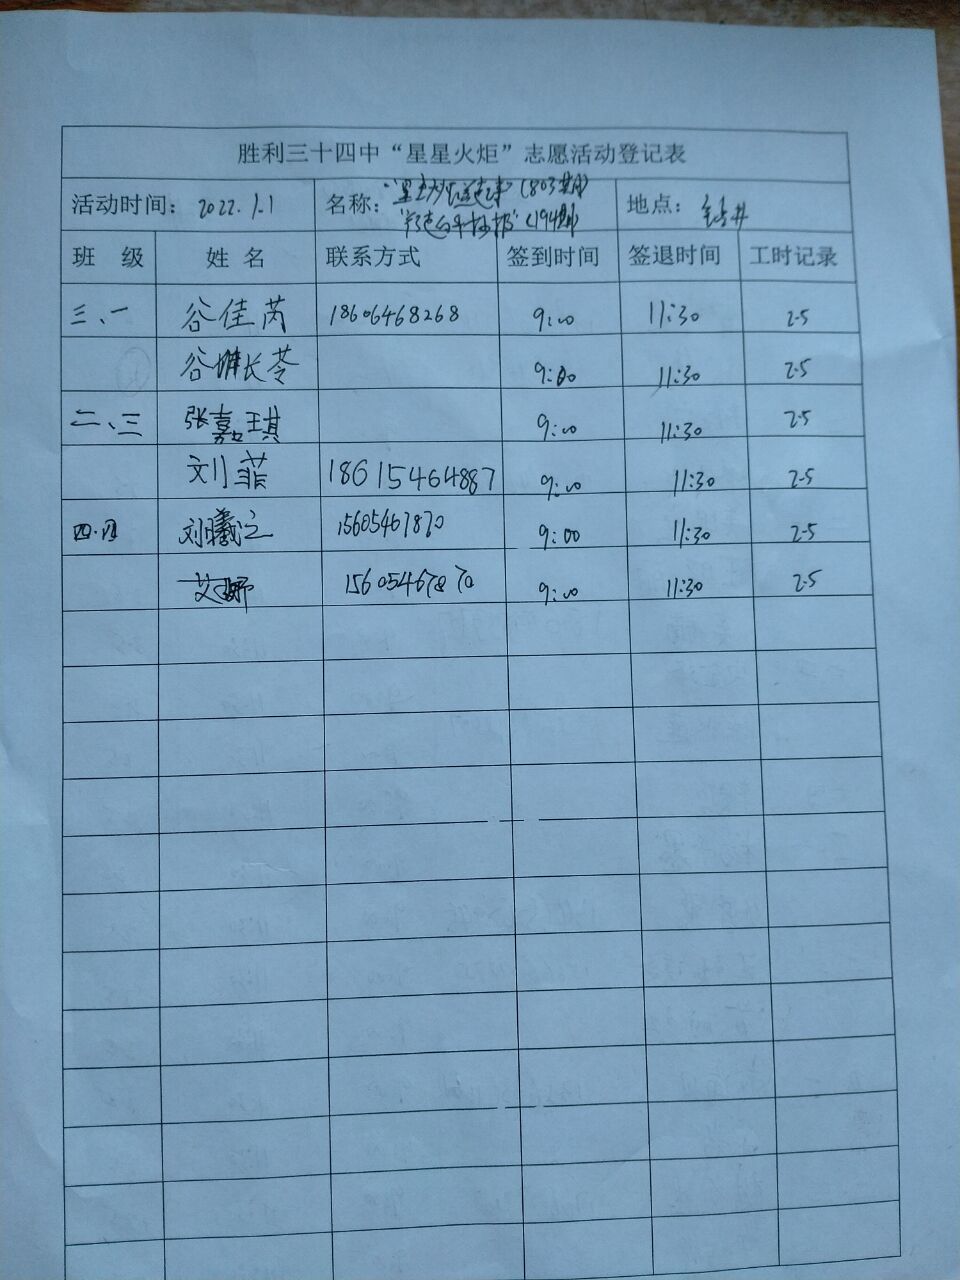 胜利三十四中“星星火炬”志愿活动登记表
活动时间：2022.1.1 名称：(803期) 地点：
(194期)
班 级 姓 名 联系方式 签到时间 签退时间 工时记录
三、一 谷佳芮 18606468268 9:00 11:30 2.5
谷 长苓 9:00 11:30 2.5
二、三 张嘉琪 9:00 11:30 2.5
刘菲 18615464887 9:00 11:30 2.5
四.四 刘曦之 15605467870 9:00 11:30 2.5
艾娜 15605467870 9:00 11:30 2.5